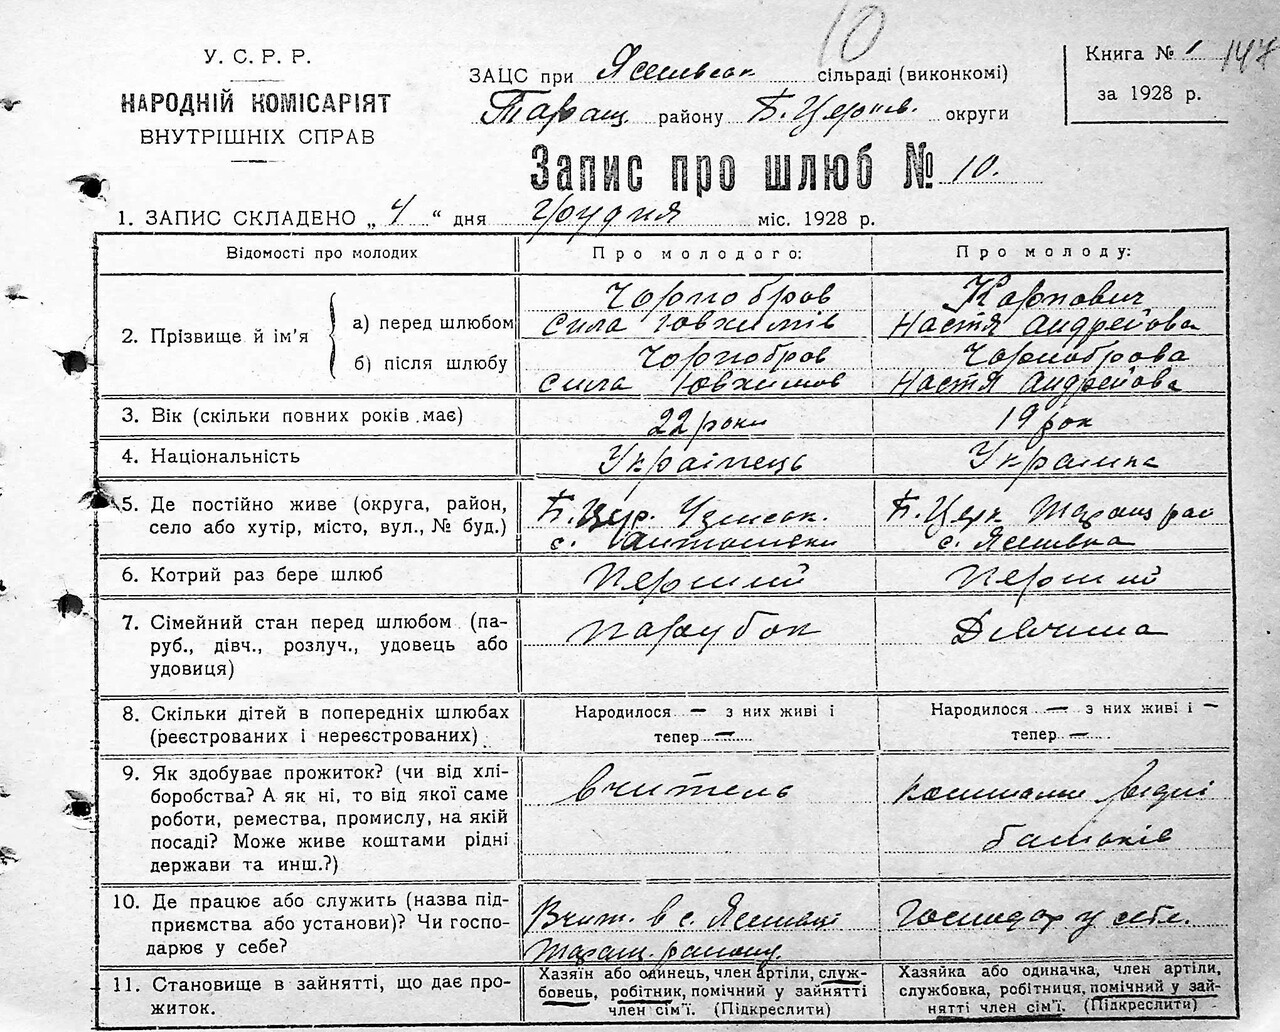 10
У. С. Р. Р.
НАРОДНІЙ КОМІСАРІЯТ
ВНУТРІШНІХ СПРАВ
ЗАЦС при Ясинівськ сільраді (виконкомі)
Таращ району Б. Церків. округи
Книга № 1 147
за 1928 р.
Запис про шлюб № 10.
1. ЗАПИС СКЛАДЕНО „4“ дня грудня міс. 1928 р.
Відомості про молодих
Про молодого:
Про молоду:
2. Прізвище й ім'я
а) перед шлюбом
Чорнобров
Сила Ювхимів
Карпович
Настя Андрейова
б) після шлюбу
Чорнобров
Сила Ювхимов
Чорноброва
Настя Андрейова
3. Вік (скільки повних років має)
22 роки
19 рок
4. Національність
Українець
Українка
5. Де постійно живе (округа, район,
село або хутір, місто, вул., № буд.)
Б. Цер. Узинськ.
с.
Б. Церк Таращ рай
с. Ясинівка
6. Котрий раз бере шлюб
Перший
Перший
7. Сімейний стан перед шлюбом (па-
руб., дівч., розлуч., удовець або
удовиця)
парубок
Дівчина
8. Скільки дітей в попередніх шлюбах
(реєстрованих і нереєстрованих)
Народилося — з них живі і
тепер —
Народилося — з них живі і —
тепер —
9. Як здобуває прожиток? (чи від хлі-
боробства? А як ні, то від якої саме
роботи, ремества, промислу, на якій
посаді? Може живе коштами рідні
держави та инш.?)
вчитель
коштами рідні
батьків
10. Де працює або служить (назва під-
приємства або установи)? Чи госпо-
дарює у себе?
Вчит. в с. Ясинівці
Таращ. району.
Господар у себе.
11. Становище в зайнятті, що дає про-
житок.
Хазяїн або одинець, член артіли, служ-
бовець, робітник, помічний у зайнятті
член сім'ї. (Підкреслити)
Хазяйка або одиначка, член артіли,
службовка, робітниця, помічний у зай-
нятті член сім'ї. (Підкреслити)